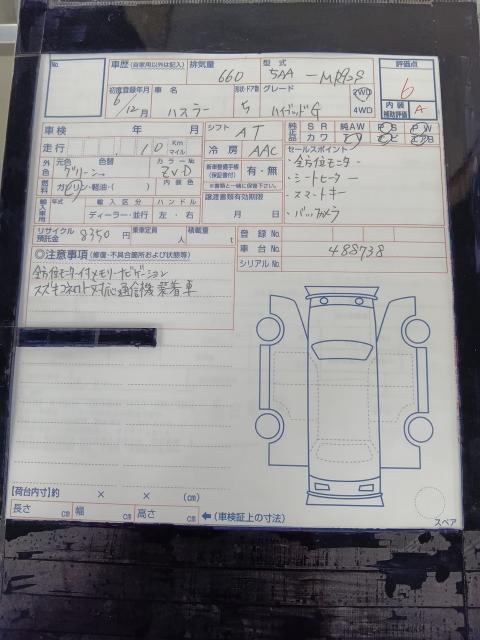 No.
車歴 (自家用以外は記入) 排気量 660 型式 5AA-MR92S 評価点 6
初度登録年月 6/12月 車名 ハスラー 形状・ドア数 5 グレード ハイブリッドG 2WD 4WD 内装補助評価 A
車検 年 月 シフト AT 純正品 SR 純AW PS PW
走行 10 Km マイル 冷房 AAC カワ
外色 元色 グリーン 色替 カラーNo. ZVD 新車整備手帳(保証書付) 有・無 セールスポイント
・全方位モニター
・シートヒーター
・スマートキー
・バックカメラ
燃料 ガソリン・軽油・( ) 内装色 ※書類と一緒に保管下さい。
輸入車用 年式 輸入区分 ハンドル 譲渡書類有効期限
ディーラー・並行 左・右 月 日
リサイクル預託金 8350円 乗車定員 人 積載量 t 登録No.
車台No. 488738
シリアルNo.
◎注意事項 (修復・不具合箇所および状態等)
全方位モニター付メモリーナビゲーション
スズキコネクト対応通信機装着車
【荷台内寸】約 × × (cm)
長さ cm 幅 cm 高さ cm ←(車検証上の寸法)
スペア